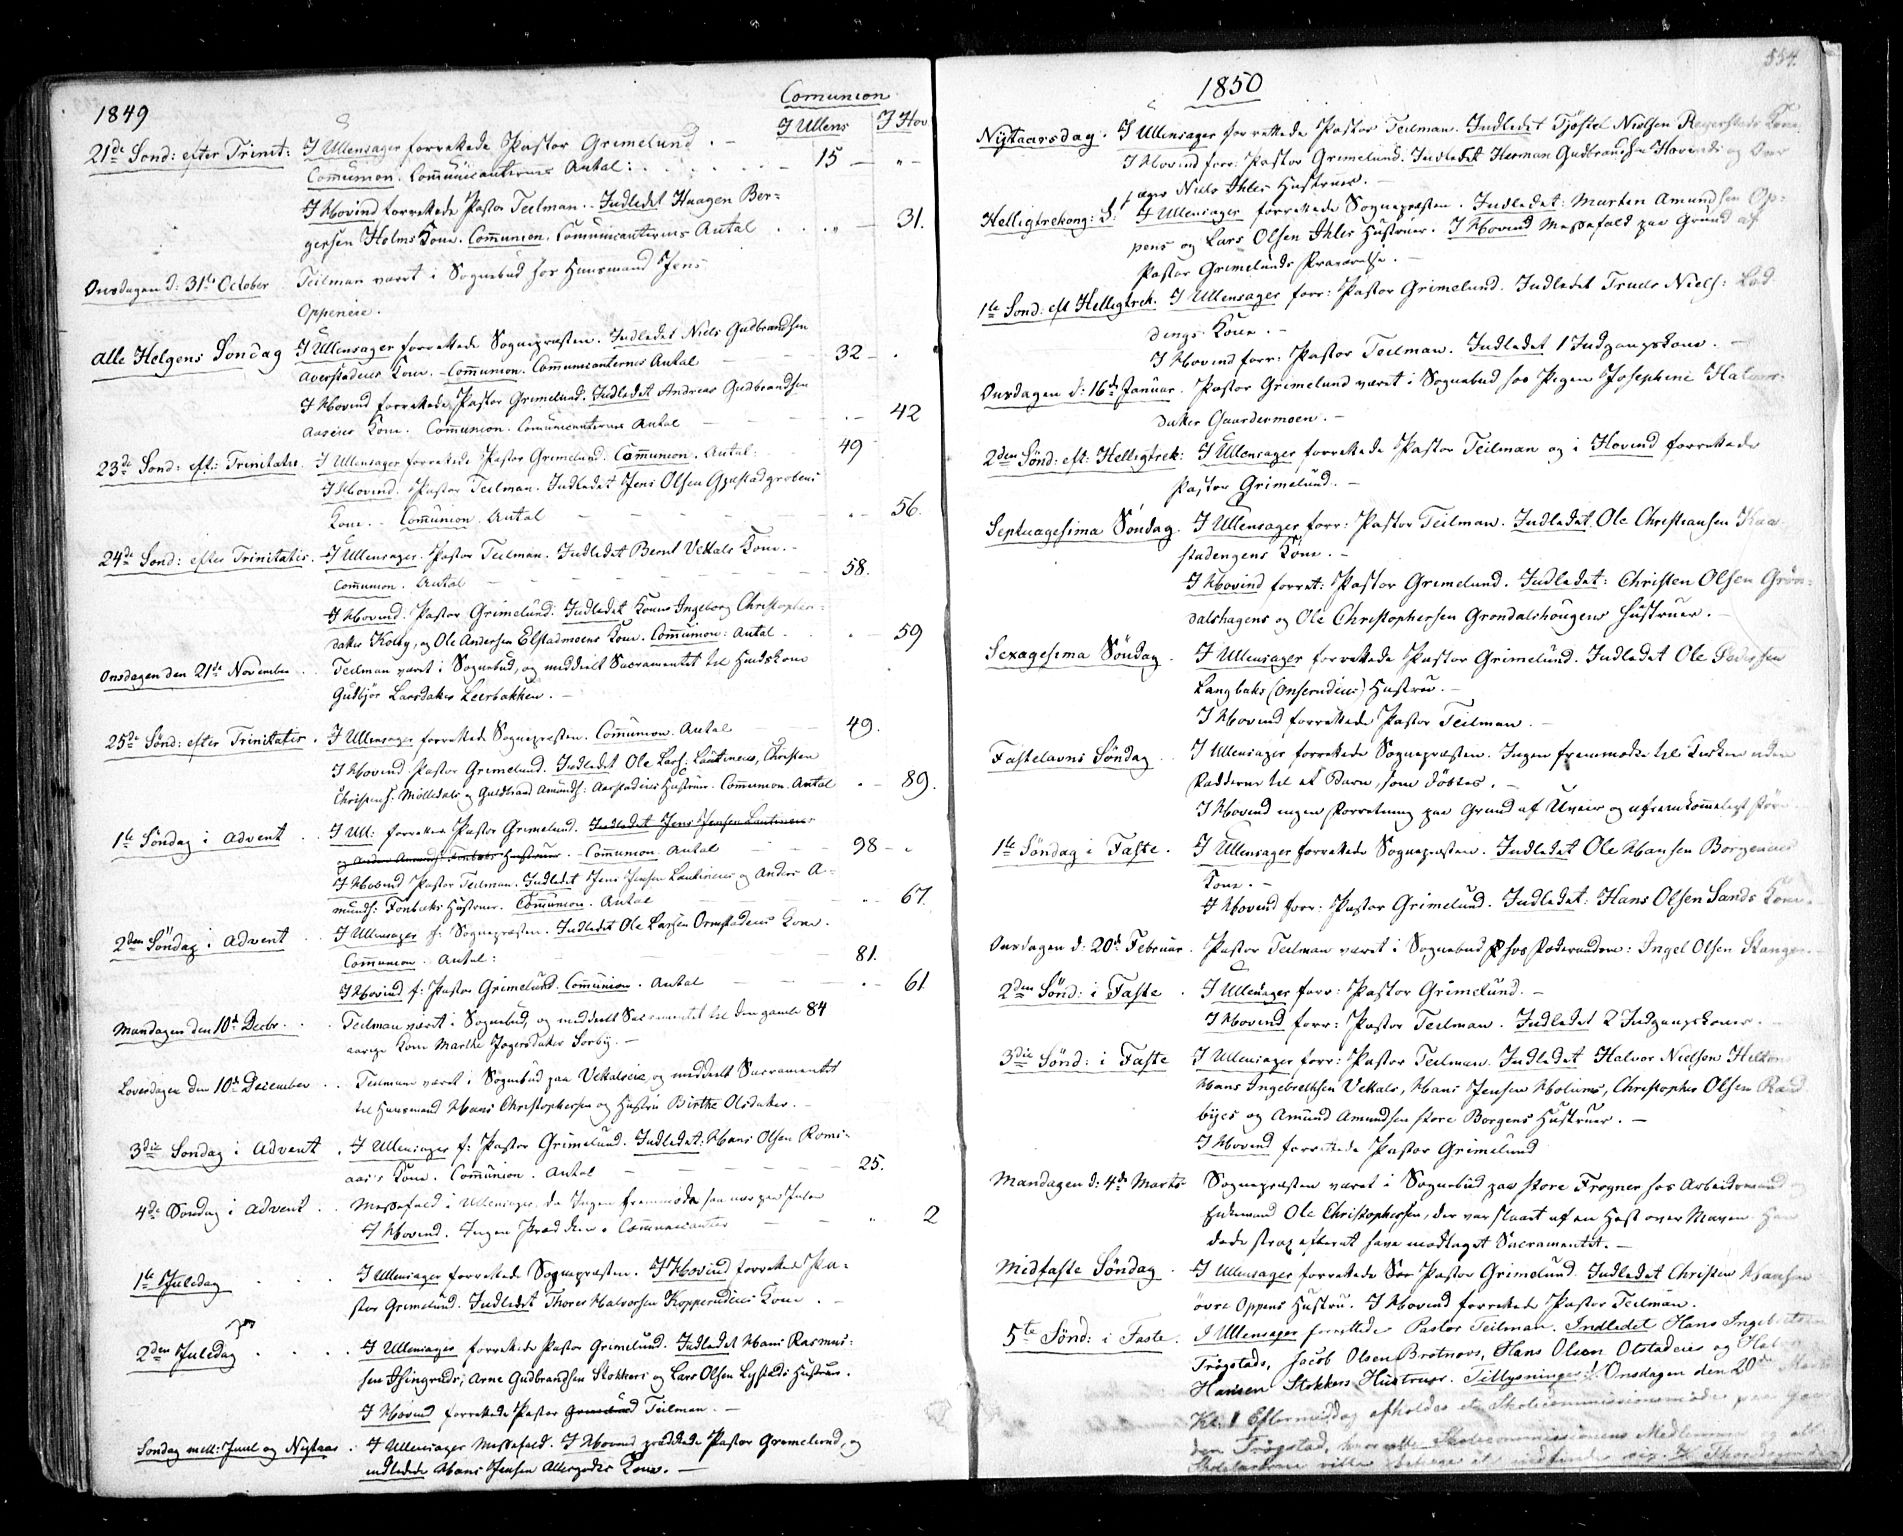 1849
Comunion
I Ullens I Hov
21de Sond: efter Trinit: I Ullensager forrettede Pastor Grimelund. —
Comunion. Comunicanternes Antal: 15 — " —
I Hovind forrettede Pastor Teilman. Indledet Haagen Ber-
gersen Holms Kone. Comunion. Comunicanternes Antal " — 31.
Onsdagen d: 31te October Teilman været i Sognebud hos Huusmand Jens
Oppeneie.
Alle Helgens Sondag I Ullensager forrettede Sognepræsten. Indledet Niels Gudbrandsen
Averstadeies Kone. — Comunion. Communicanternes Antal 32 —
I Hovind forrettede Pastor Grimelund. Indledet Andreas Gudbrandsen
Aaseies Kone. Comunion. Comunicanternes Antal 42
23de Sond: eft: Trinitatis. I Ullensager forrettede Pastor Grimelund. Comunion. Antal: 49
I Hovind. Pastor Teilman. Indledet Jens Olsen Gjestadgrobens
Kone. — Comunion. Antal 56.
24de Sond: efter Trinitatis. I Ullensager. Pastor Teilman. Indledet Bernt Vekals Kone. —
Comunion. Antal 58.
I Hovind. Pastor Grimelund. Indledet Koner Ingeborg Christopher-
datter Kolby, og Ole Andersen Elstadmoens Kone. Comunion: Antal 59
Onsdagen den 21de November Teilman været i Sognebud, og meddeelt Sacramentet til Huuskone
Gudbjør Larsdatter Leerbakken. —
25de Sönd: efter Trinitatis. I Ullensager forrettede Sognepræsten. Comunion. Antal 49.
I Hovind Pastor Grimelund. Indledet Ole Lars: Lautineies, Christen
Christens: Mölledals og Guldbrand Amunds: Aarstadeies Hustruer. Comunion. Antal 89.
1te Söndag i Advent I Ull: forrettede Pastor Grimelund. Indledet Jens Jensen Lautineies
og Anders Amunds: Fonbæks Hustruer. Comunion. Antal 98 —
I Hovind Pastor Teilman. Indledet Jens Jensen Lautineies og Anders A-
munds: Fonbæks Hustruer. Comunion. Antal 67.
2den Söndag i Advent I Ullensager f: Sognepræsten. Indledet Ole Larsen Ormstadeies Kone.
Communion. Antal: 81.
I Hovind f: Pastor Grimelund. Comunion. Antal 61
Mandagen den 10de Decbr. Teilman været i Sognebud, og meddeelt Sacramentet til den gamle 84
aarige Kone Marthe Jagersdatter Sorby. —
Loverdagen den 10de December Teilman været i Sognebud paa Vekalseie og meddeelt Sacramentet
til Huusmand Hans Christophersen og Hustru Birthe Olsdatter. —
3die Sondag i Advent. I Ullensager f: Pastor Grimelund. Indledet: Hans Olsen Roms-
aas's Kone. Comunion. Antal 25.
4de Söndag i Advent Messefald i Ullensager, da Ingen fremmödte saa nær paa Julen
I Hovind. Ingen Prædiken. Communicanter 2
1te Juledag I Ullensager forrettede Sognepræsten. I Hovind forrettede Pa-
stor Grimelund. Indledet Thores Halvorsen Kopperudeies Kone. —
2den Juledag I Ullensager forrettede Pastor Grimelund. Indledet Hans Rasmus-
sen Asingruds; Arne Gudbrandsen Stokkers og Lars Olsen Lystads Hustruer.
I Hovind forrettede Pastor Grimelund Teilman. —
Sondag mell: Juul og Nytaar. I Ullensager Messefald. I Hovind prædikede Pastor Grimelund, og
indledede Hans Jensen Allergodts Kone. —
554.
1850
Nytaarsdag. I Ullensager forrettede Pastor Teilman. Indledet Tjostel Nielsen Kone,
I Hovind forr: Pastor Grimelund. Indledet Herman Gudbrandsen Hovinds og
Niels Ihles Hustruer. —
Helligtrekong: S: I Ullensager forrettede Sognepræsten. Indledet: Morten Amundsen Op-
pens og Lars Olsen Ihles Hustruer. I Hovind Messefald paa Grund af
Pastor Grimelunds Fraværelse. —
1te Sond: eft Helligtrek. I Ullensager forr: Pastor Grimelund. Indledet Truls Niels: Lod-
dings Kone. —
I Hovind forr: Pastor Teilman. Indledet 1 Indgangskone. —
Onsdagen d: 16de Januar. Pastor Grimelund været i Sognebud hos Pigen Josephine Halvors-
datter Gaardermoen. —
2den Sönd: eft: Helligtrek: I Ullensager forrettede Pastor Teilman og i Hovind forrettede
Pastor Grimelund. —
Septuagesima Söndag. I Ullensager forr: Pastor Teilman. Indledet Ole Christiansen Kaa-
stadengens Kone. —
I Hovind forret: Pastor Grimelund. Indledet: Christen Olsen Grön-
dalshagens og Ole Christophersen Grondalshougens Hustruer. —
Sexagesima Söndag. I Ullensager forrettede Pastor Grimelund. Indledet Ole Pedersen
Langbaks (Onserudeies) Hustru. —
I Hovind forrettede Pastor Teilman. —
Fastelavns Söndag I Ullensager forrettede Sognepræsten. Ingen fremmødte til Kirken uden
Fadderne til et Barn, som döbtes. —
I Hovind ingen Forretning paa Grund af Uveir og ufremkommeligt Före
1te Söndag i Faste. I Ullensager forrettede Sognepræsten. Indledet Ole Hansen Borgeneies
Kone. —
I Hovind forr: Pastor Grimelund. Indledet: Hans Olsen Sands Kone.
Onsdagen d: 20de Februar. Pastor Teilman været i Sognebud hos Inger Olsen Stanger.
2den Sönd: i Faste. I Ullensager forr: Pastor Grimelund. —
I Hovind forr: Pastor Teilman. Indledet 2 Indgangskoner. —
3die Sönd: i Faste I Ullensager forr: Pastor Teilman. Indledet Halvor Nielsen Hilton
Hans Ingebrethsen Vekals, Hans Jensen Holums, Christopher Olsen Rand-
byes og Amund Amundsen store Borgens Hustruer. —
I Hovind forrettede Pastor Grimelund
Mandagen d: 4de Marts Sognepræsten været i Sognebud paa store Frogner hos Arbeidsmand og
Enkemand Ole Christophersen, der var slaaet af en Hest over Maven. Han
döde strax efterat have modtaget Sacramentet. —
Midfaste Söndag. I Ullensager forrettede Pastor Grimelund. Indledet Christen Hansen
övre Oppens Hustru. I Hovind forrettede Pastor Teilman.
5te Sönd: i Faste. I Ullensager forrettede Pastor Teilman. Indledet Hans Ingebretsen
Trögstads, Jacob Olsen Brotnovs, Hans Olsen Olstadeies og Halvor
Hansen Stokkers Hustruer. Tillysninger: 1/ Onsdagen den 20de Marts
Kl: 1 Eftermiddag afholdes et Skolecommissionsmøde paa Gaar-
den Trögstad, hvor Skolecommissionens Medlemmer og alle
Skolelærere ville behage at indfinde sig.